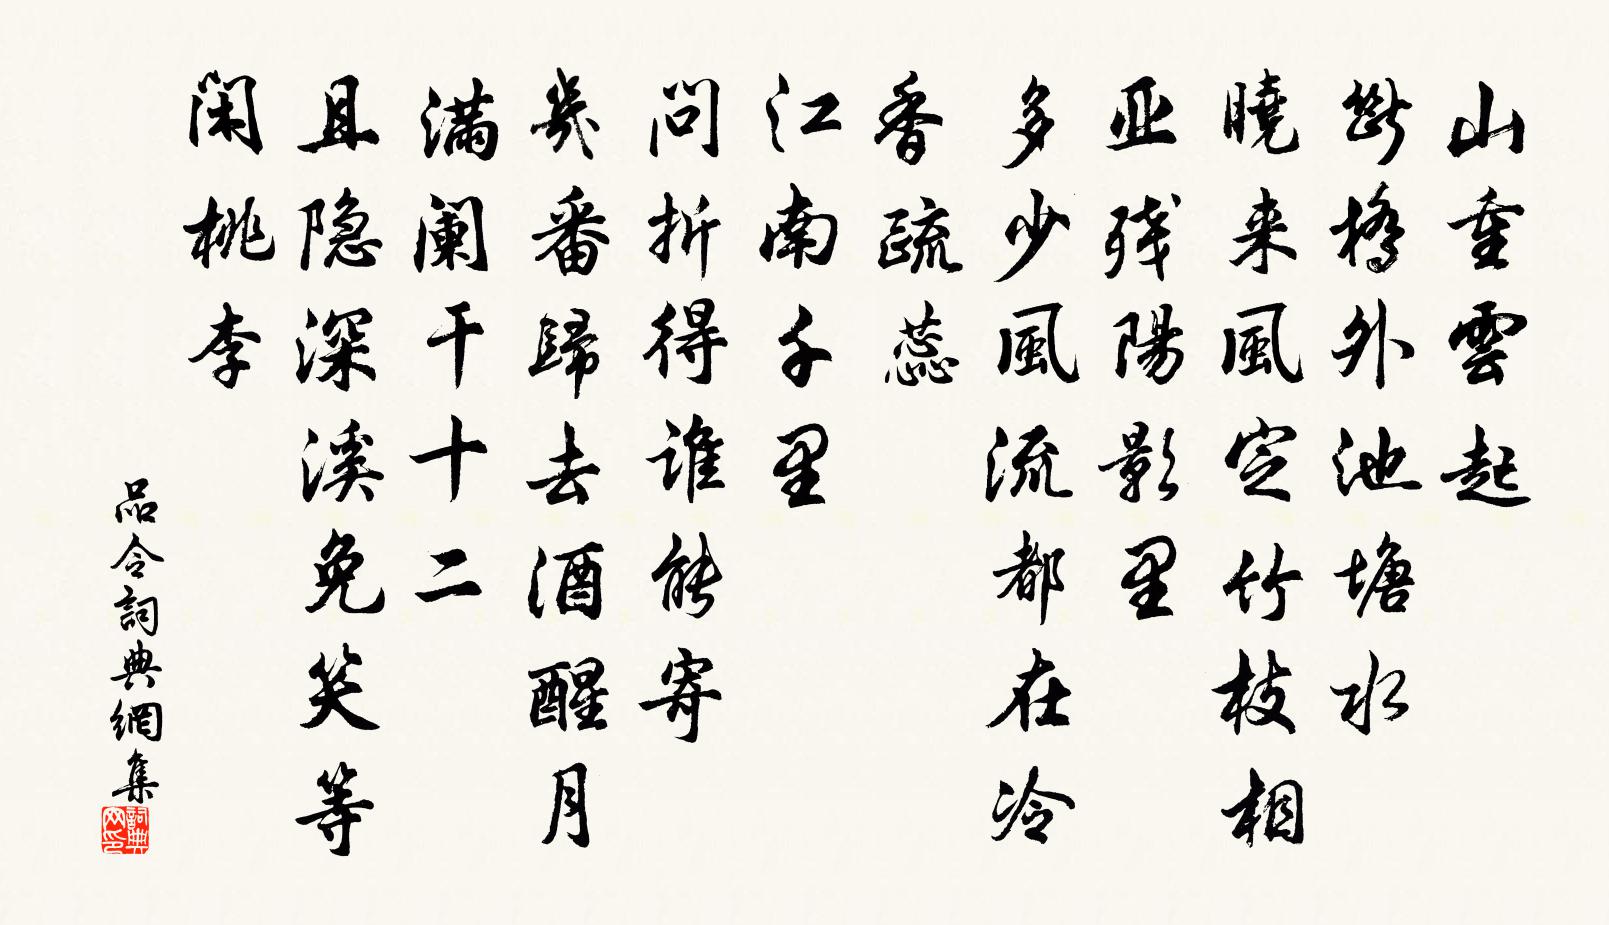 山重雲起
斷橋外池塘水
曉来風定竹枝相
亚残陽影里
多少風流都在冷
香疏蕊
江南千里
問折得谁能寄
幾番歸去酒醒月
满阑干十二
且隐深溪免笑等
閑桃李
品令詞典網集
詞典网印